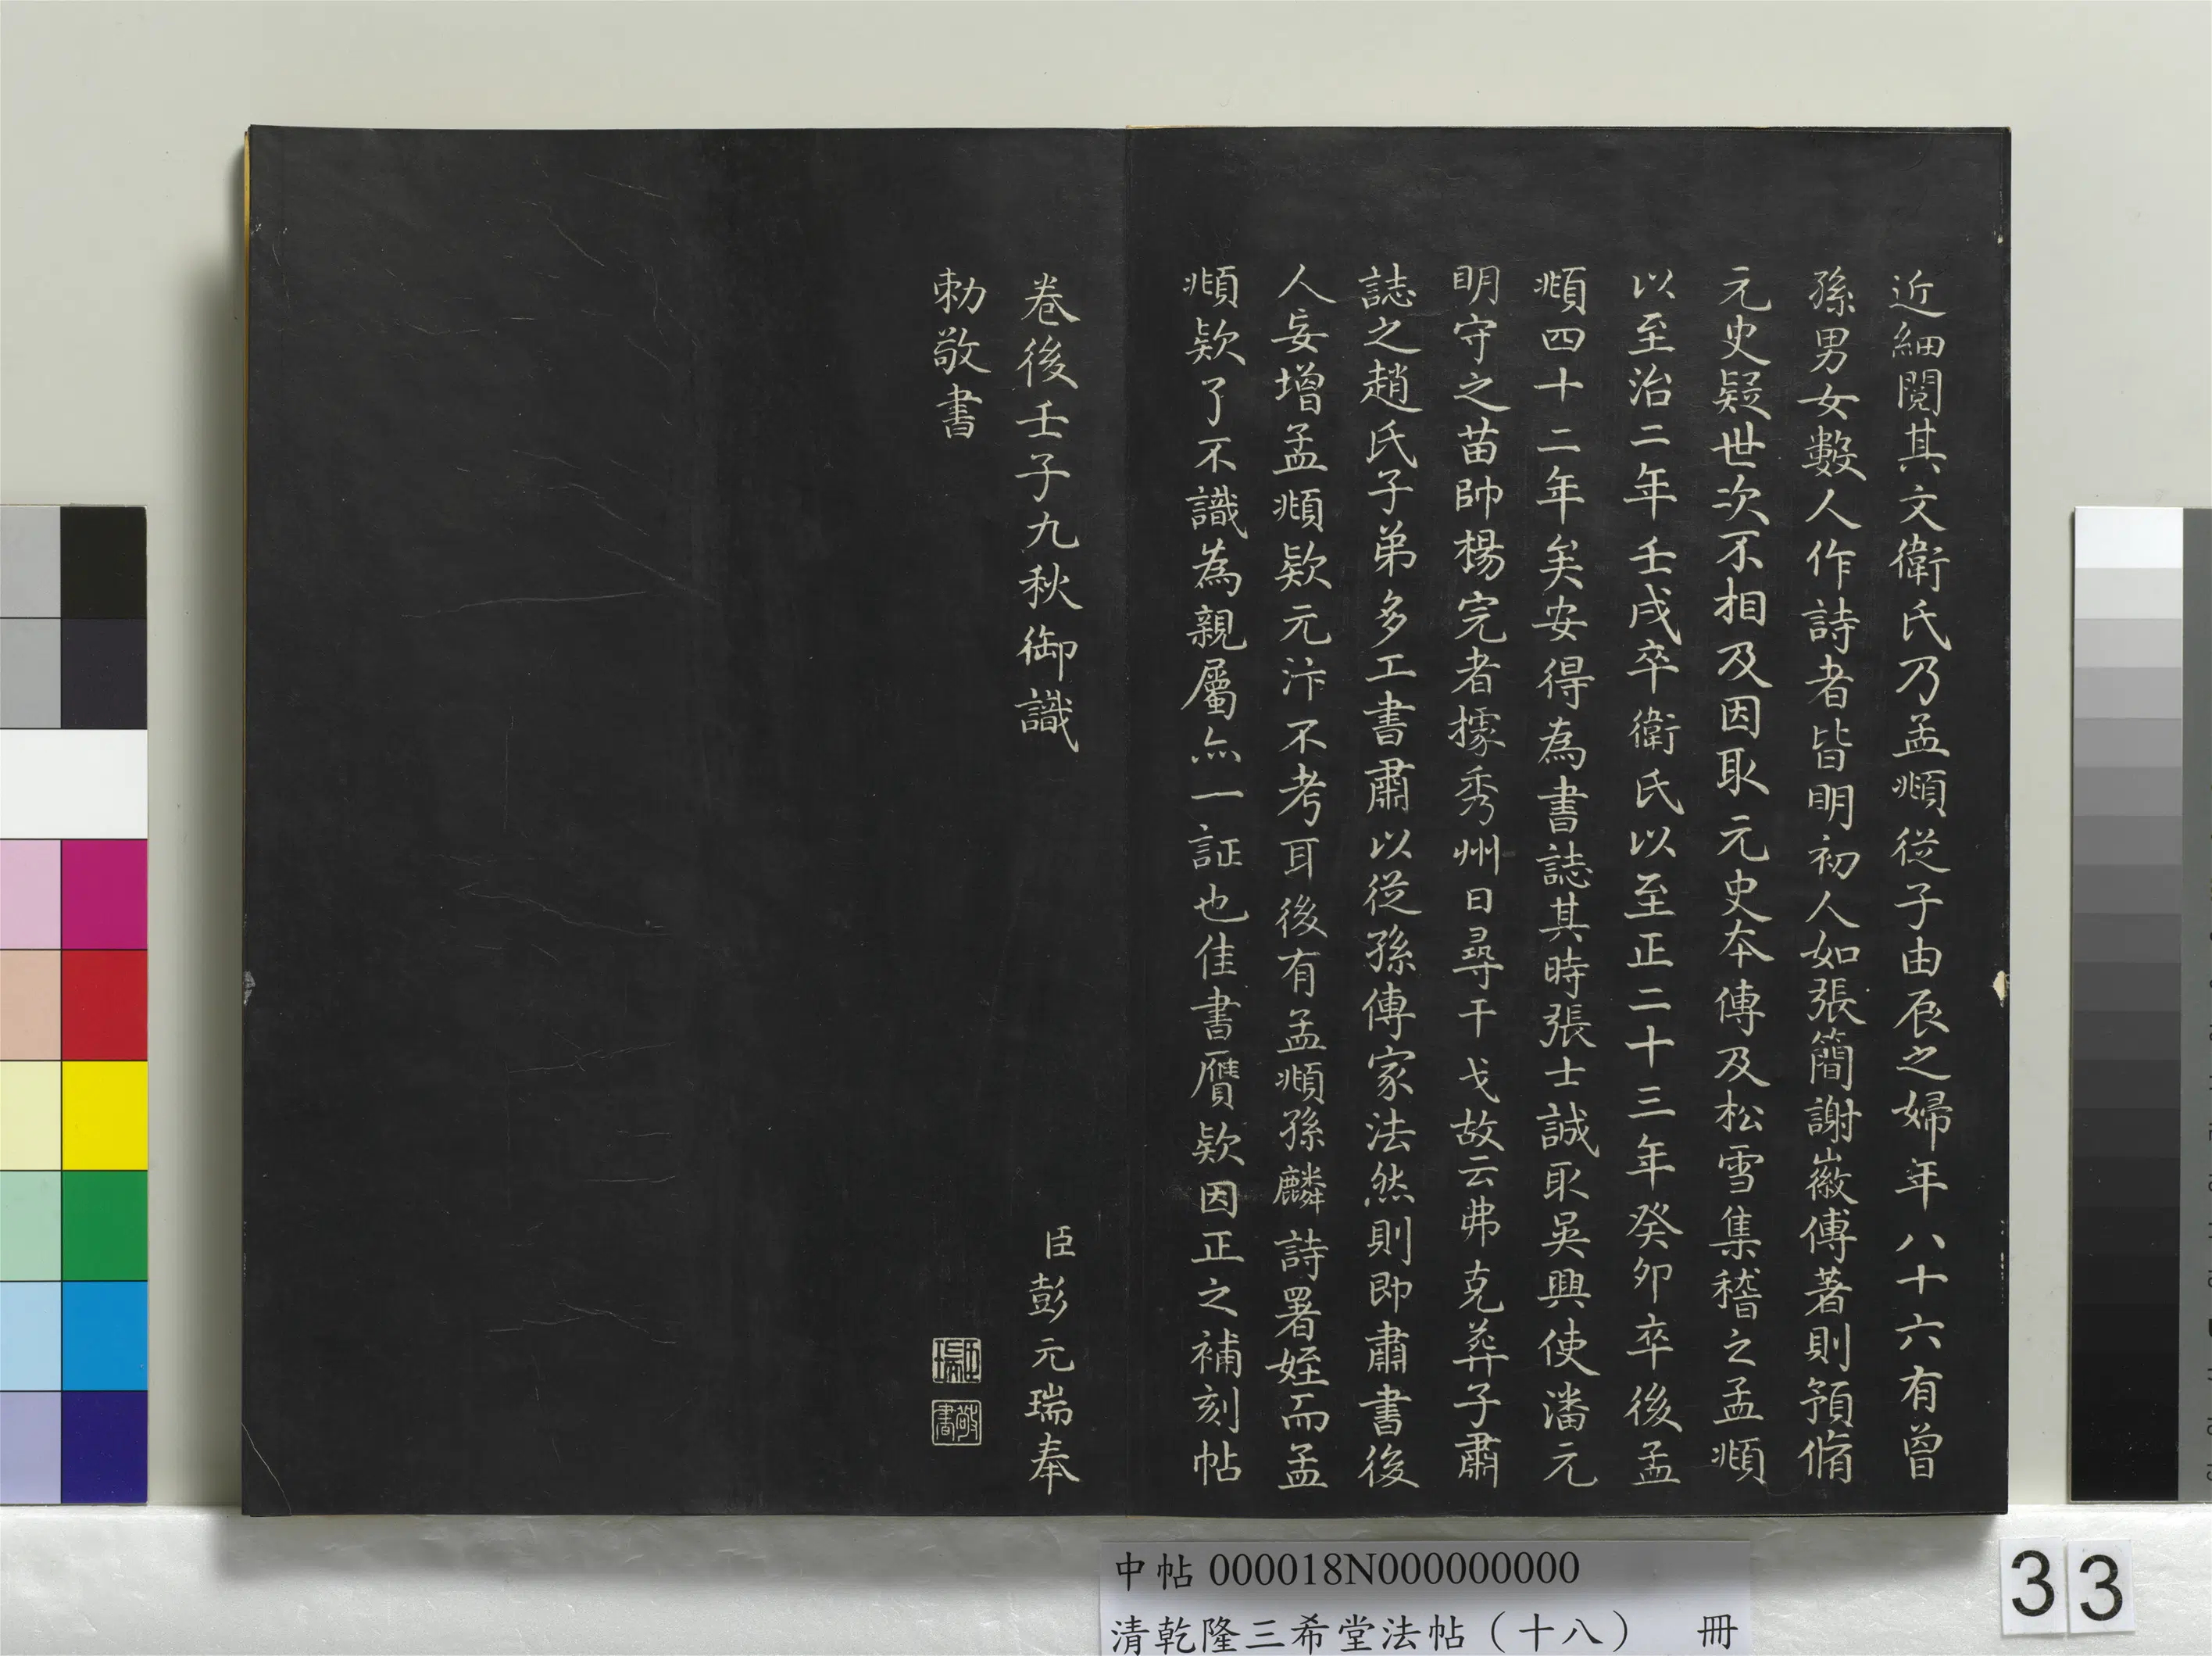 近細閱其文衛氏乃孟頫從子由辰之婦年八十六有曾
孫男女數人作詩者皆明初人如張簡謝徽傅著則預脩
元史疑世次不相及因取元史本傳及松雪集稽之孟頫
以至治二年壬戌卒衛氏以至正二十三年癸卯卒後孟
頫四十二年矣安得為書誌其時張士誠取吳興使潘元
明守之苗帥楊完者據秀州日尋干戈故云弗克葬子肅
誌之趙氏子弟多工書肅以從孫傳家法然則即肅書後
人妄增孟頫欵元汴不考耳後有孟頫孫麟詩署姪而孟
頫欵了不識為親屬亦一証也佳書贋欵因正之補刻帖
卷後壬子九秋御識
臣彭元瑞奉
勅敬書
臣瑞
敬書
中帖 000018N000000000
清乾隆三希堂法帖（十八） 冊
33